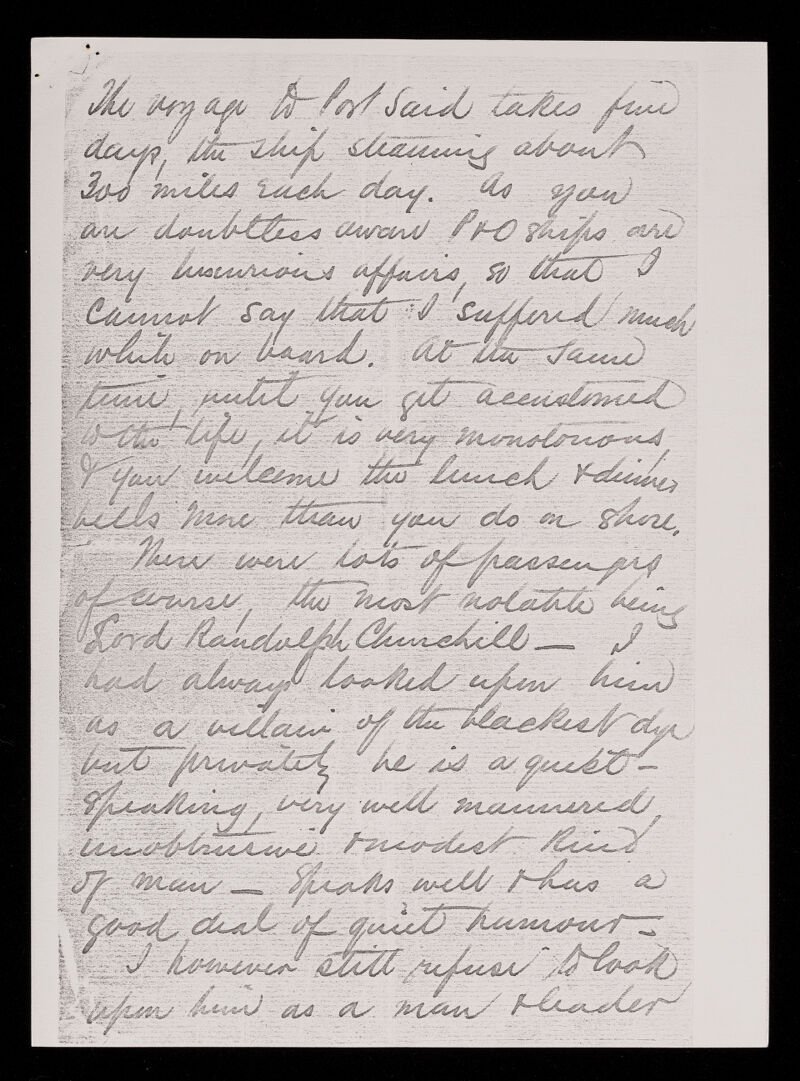 The voyage to Port Said takes five
days, the ship steaming about
300 miles each day. As you
are doubtless aware P&O ships are
very luxurious affairs, so that I
cannot say that I suffered much
while on board. At the same
time, until you get accustomed
to the life, it is very monotonous,
& you welcome the lunch & dinner
bells more than you do on shore.
There were lots of passengers
of course, the most notable being
Lord Randolph Churchill — I
had always looked upon him
as a villain of the blackest dye
but privately he is a quiet-
speaking, very well mannered,
unobtrusive & modest kind
of man — Speaks well & has a
good deal of quiet humour —
I however still refuse to look
upon him as a man & leader